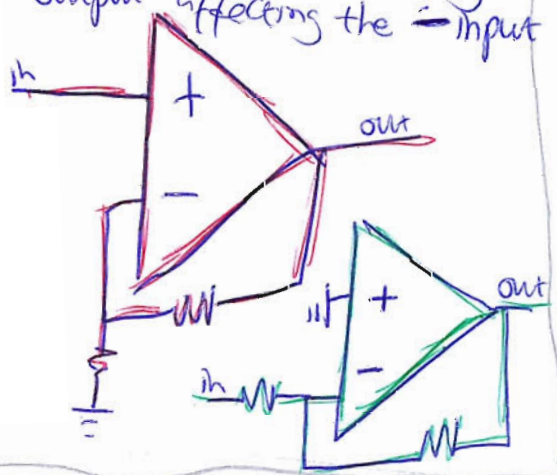 output affecting the - input
in
+
out
-
out
+
in
-